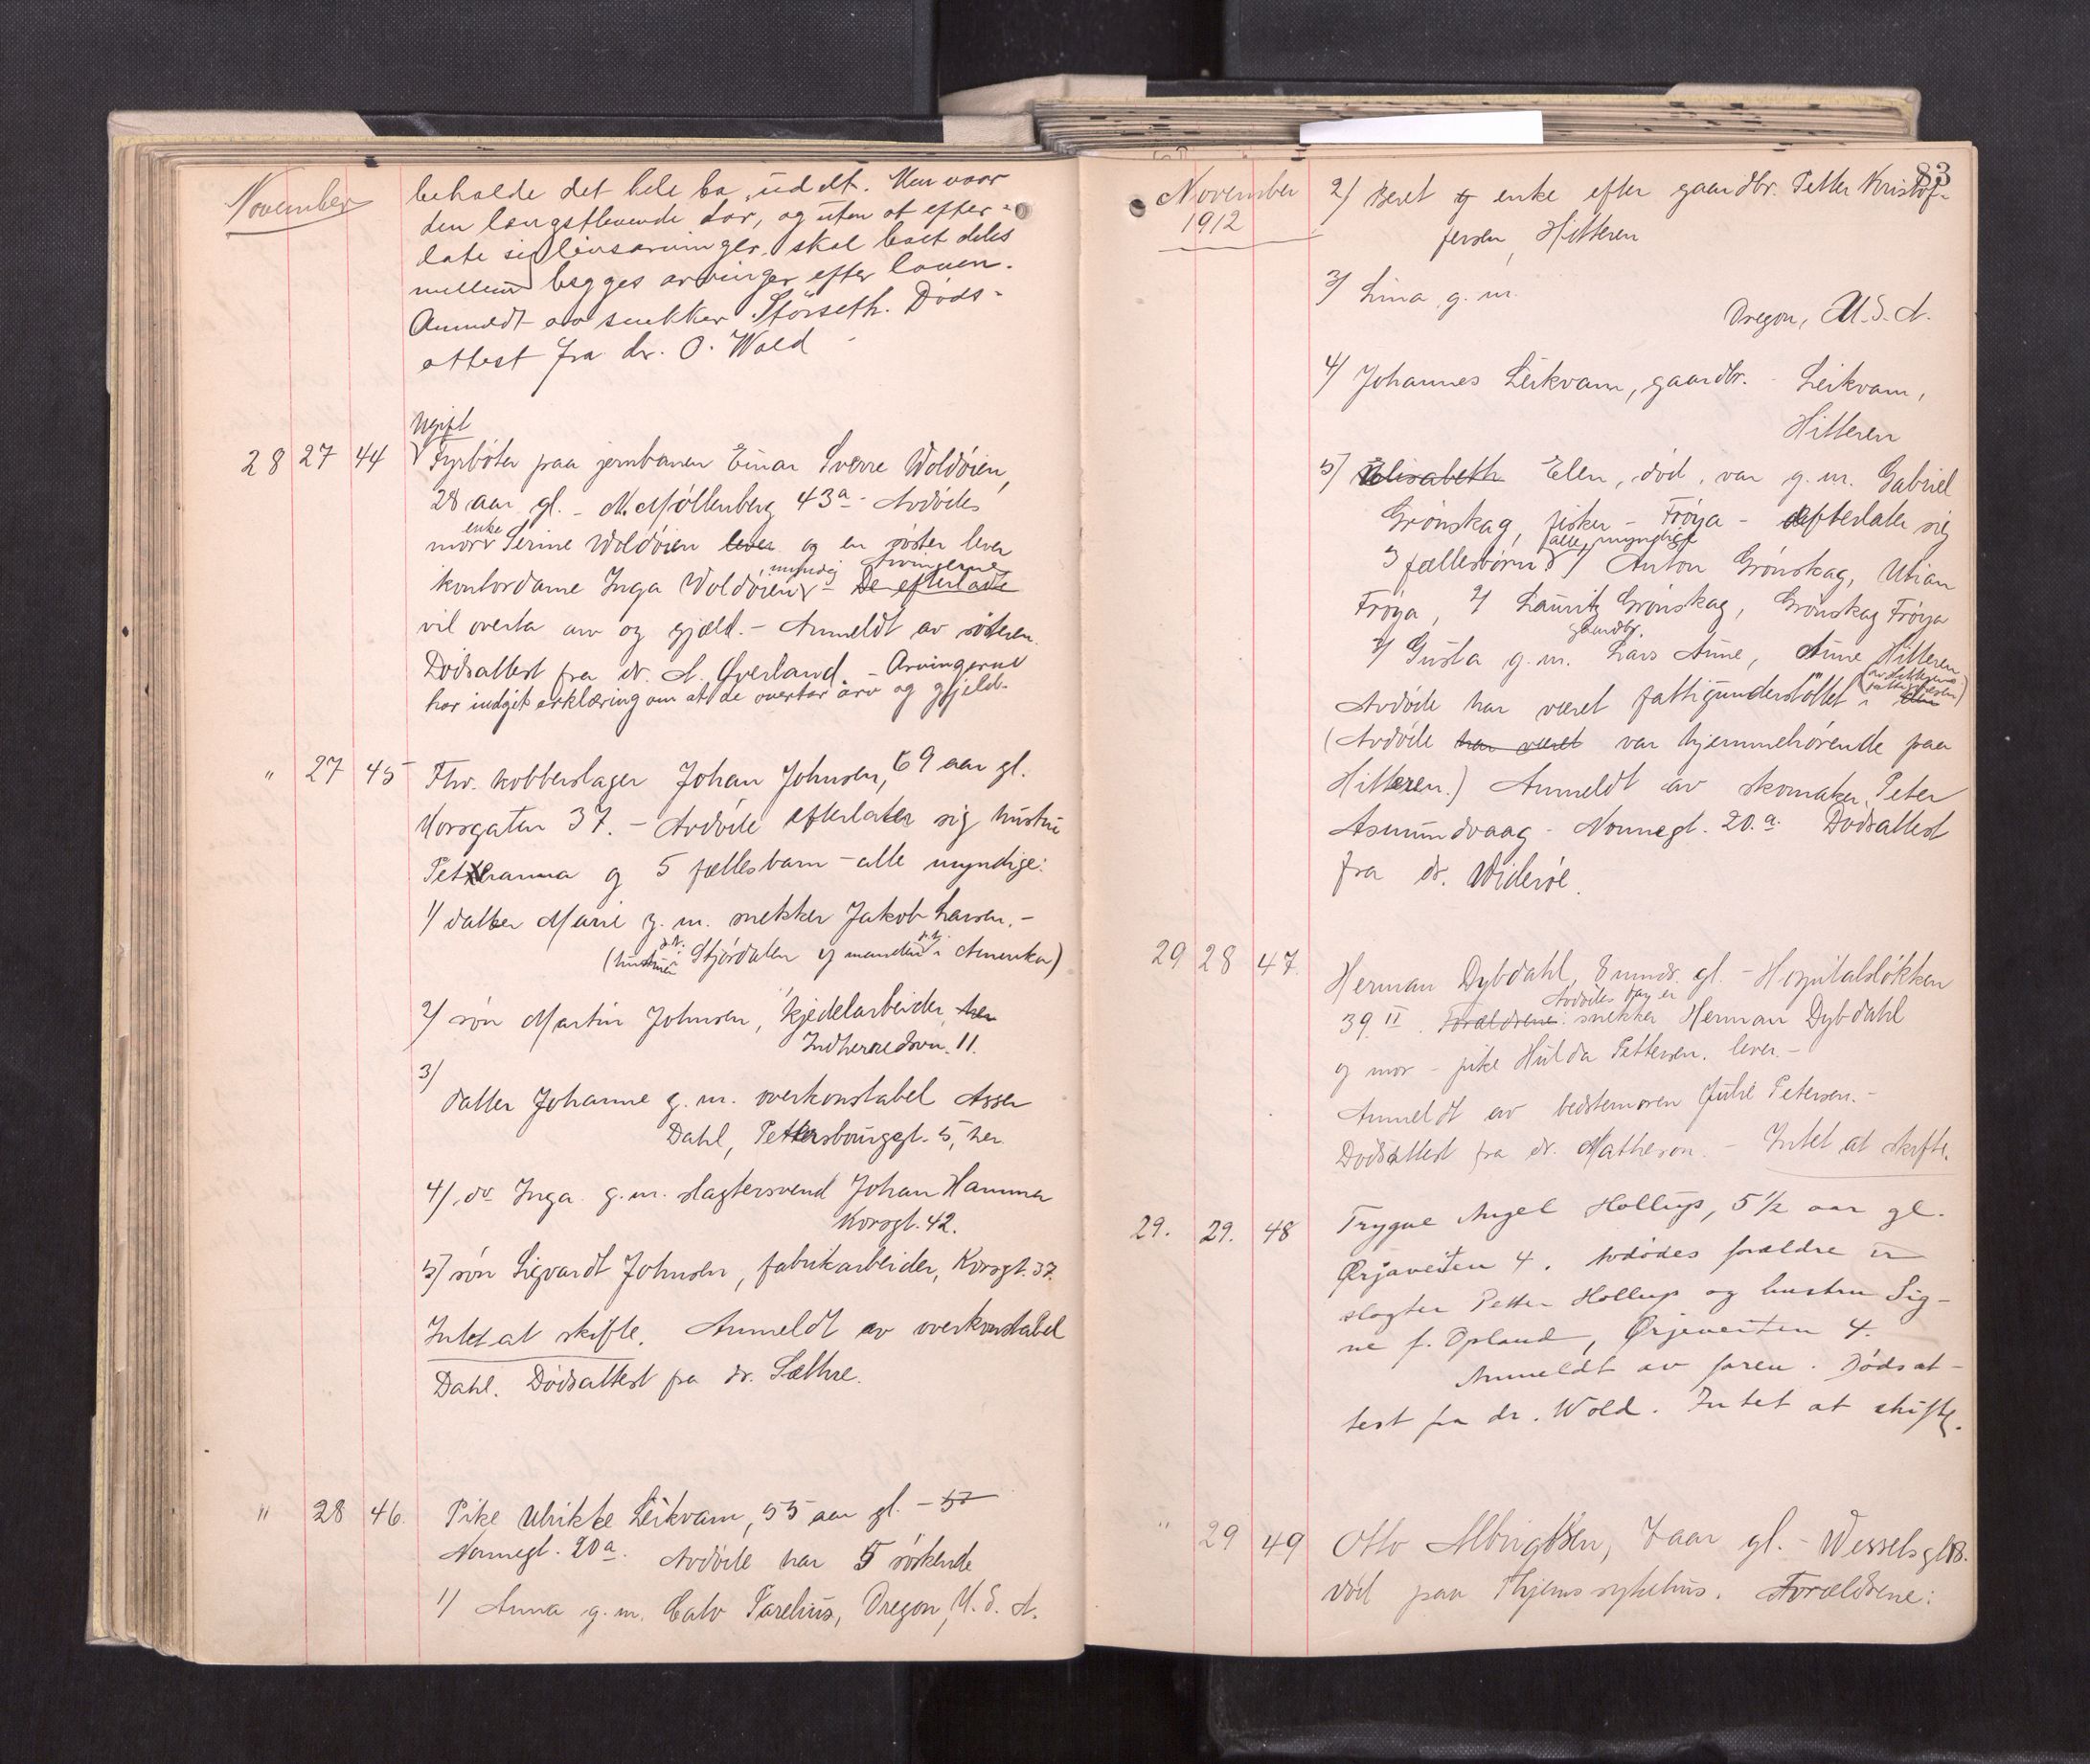 November
beholde det hele bo uddelt. Naar
den længstlevende dør, og uten at efter-
late sig livsarvinger, skal boet deles
mellem begges arvinger efter loven.
Anmeldt av snekker Störseth. Døds-
attest fra dr. O. Wold
Ugift
28 27 44 Fyrbøter paa jernbanen Einar Sverre Woldøien,
28 aar gl. - N. Møllenberg 43a - Avdødes
enke
mor Serine Woldøien lever og en søster lever
myndig Arvingerne
kontordame Inga Woldøien - De efterladte
vil overta arv og gjæld. - Anmeldt av søsteren.
Dødsattest fra dr. A. Øverland. - Arvingerne
har indgit erklæring om at de overtar arv og gjæld.
" 27 45 Fhv. kobberslager Johan Johnsen, 69 aar gl.
Korsgaten 37. - Avdøde efterlater sig hustru
Petranna og 5 fællesbarn - alle myndige:
1/ datter Marie g. m. snekker Jakob Larsen. -
p.t. p.t.
(hustruen i Stjørdalen og manden i Amerika)
2/ søn Martin Johnsen, kjedelarbeider, her
Indherredsvn. 11.
3/
datter Johanne g. m. overkonstabel Asser
Dahl, Pettersborggt. 5, her
4/ do Inga g. m. slagtersvend Johan Hammer
Korsgt. 42.
5/ søn Sigvardt Johnsen, fabrikarbeider, Korsgt. 37.
Intet at skifte. Anmeldt av overkonstabel
Dahl. Dødsattest fra dr. Sæthre.
" 28 46. Pike Ulrikke Leikvam, 55 aar gl. - 57
Nonnegt. 20a. Avdøde har 5 søskende
1/ Anna g. m. Calv Parelius, Oregon, U. S. A.
83
November
1912
2/ Beret g enke efter gaardbr. Petter Kristof-
fersen, Hitteren
3/ Lina g. m.
Oregon, U. S. A.
4/ Johannes Leikvam, gaardbr. - Leikvam,
Hitteren
5/ Elisabeth Elen, død, var g. m. Gabriel
Grønskag, fisker - Frøya - efterlater sig
(alle myndige
3 fællesbørn 1/ Anton Grønskag, Utian
Frøya, 2/ Lauritz Grønskag, Grønskag Frøya
gaardbr.
3/ Gusta g. m. Lars Aune, Aune Hitteren
(av Hitterens
fattigvæsen)
Avdøde har været fattigunderstøttet i
(Avdøde har været var hjemmehørende paa
Hitteren.) Anmeldt av skomaker Peter
Asmundvaag - Nonnegt. 20.a. Dødsattest
fra dr. Widerøe.
29 28 47. Herman Dybdahl, 8 mnds. gl. - Hospitalsløkken
Avdødes far er
39 II. Forældrene: snekker Herman Dybdahl
og mor - pike Hulda Pettersen. lever. -
Anmeldt av bedstemoren Julie Petersen. -
Dødsattest fra dr. Matheson. - Intet at skifte.
29. 29. 48 Trygve Angel Hollup, 5 1/2 aar gl.
Ørjaveiten 4. Avdødes forældre er
slagter Petter Hollup og hustru Sig-
ne f. Opland, Ørjaveiten 4.
Anmeldt av faren. Dødsat-
test fra dr. Wold. Intet at skifte.
" 29 49 Otto Albrigtsen, 7 aar gl. - Wesselsgt. 13.
død paa Thjems sykehus. Forældrene: